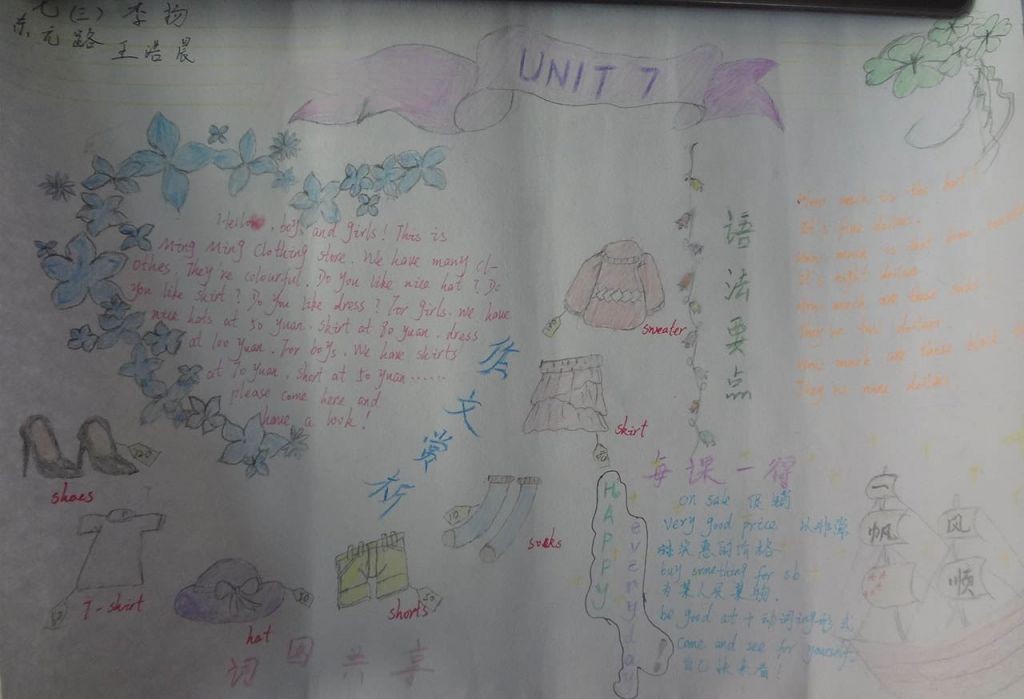 七(三) 李扬
东元路 王浩晨
UNIT 7
Hello, boys and girls! This is
Ming Ming Clothing store. We have many cl-
othes. They're colourful. Do you like nice hat? Do
you like skirt? Do you like dress? For girls. We have
nice hats at 50 yuan. skirt at 80 yuan. dress
at 100 yuan. For boys. We have skirts
at 70 yuan. short at 50 yuan......
please come here and
have a look!
文
赏
析
sweater
skirt
shoes
T-shirt
hat
shorts
socks
词 园 共 享
语
法
要
点
How much is the hat?
It's five dollars.
How much is that
It's eight dollars
How much are those
They're two dollars
How much are these
They're nine dollars
HAPPY
everyday!
每课一得
on sale
very good price 以非常
的价格
buy something for sb
为某人买某物.
be good at + 动词ing形式
come and see for yourself.
自己快来看!
一
帆
风
顺